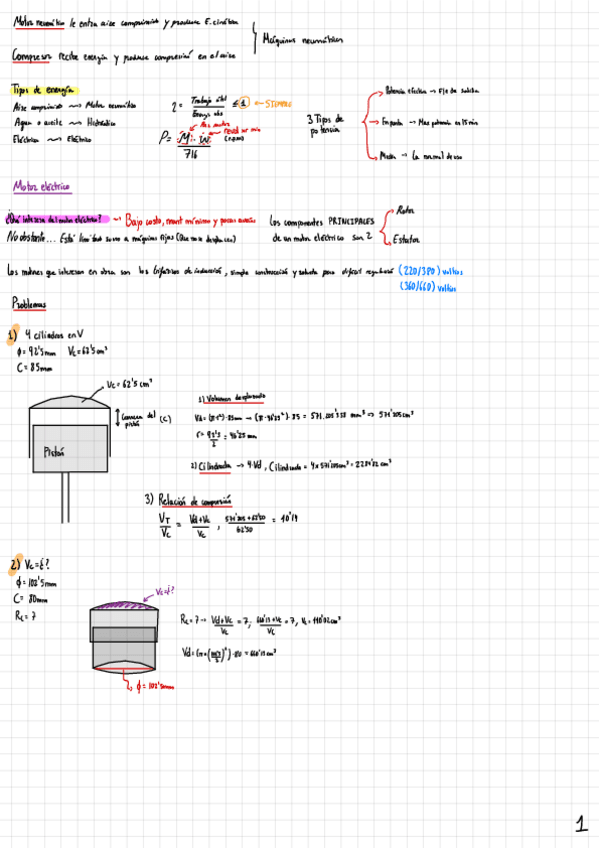 Motor neumático le entra aire comprimido y produce E. cinética
Compresor recibe energía y produce compresión en el aire
Máquinas neumáticas
Tipos de energía
Aire comprimido → Motor neumático
Agua o aceite → Hidráulico
Eléctrico → Eléctrico
η = Trabajo útil / Energ abs ≤ 1 ← SIEMPRE
Par motor
P = M · w / 716
revol por min
(r.p.m)
3 Tipos de potencia
Potencia efectiva → Eje de salida
En punta → Max potencia en 15 min
Media → La normal de uso
Motor eléctrico
¿Qué interesa del motor eléctrico? → Bajo costo, mant mínimo y pocas averías
No obstante... Está limitado su uso a máquinas fijas (Que no se desplacen)
Los componentes PRINCIPALES de un motor eléctrico son 2
Rotor
Estator
Los motores que interesan en obra son los trifásicos de inducción, simple construcción y robusta pero difícil regulación (220/380) voltios
(380/660) voltios
Problemas
1) 4 cilindros en V
ϕ = 92'5mm Vc = 62'5 cm³
C = 85mm
Vc = 62'5 cm³
Carrera del pistón (C)
Pistón
1) Volumen desplazado
Vd = (π·r²)·85mm → (π·46'25²)·85 = 571.205'358 mm³ → 571'205cm³
r = 92'5/2 = 46'25 mm
2) Cilindrada → 4·Vd, Cilindrada = 4x571'205cm³ = 2284'82 cm³
3) Relación de compresión
VT/Vc = Vd+Vc/Vc, 571'205+62'50/62'50 = 10'14
2) Vc = ¿?
ϕ = 102'5mm
C = 80mm
Rc = 7
Vc = ¿?
Rc = 7 → Vd+Vc/Vc = 7, 660'13+Vc/Vc = 7, Vc = 110'02 cm³
Vd = (π·(102'5/2)²)·80 = 660'13 cm³
ϕ = 102'5mm
1